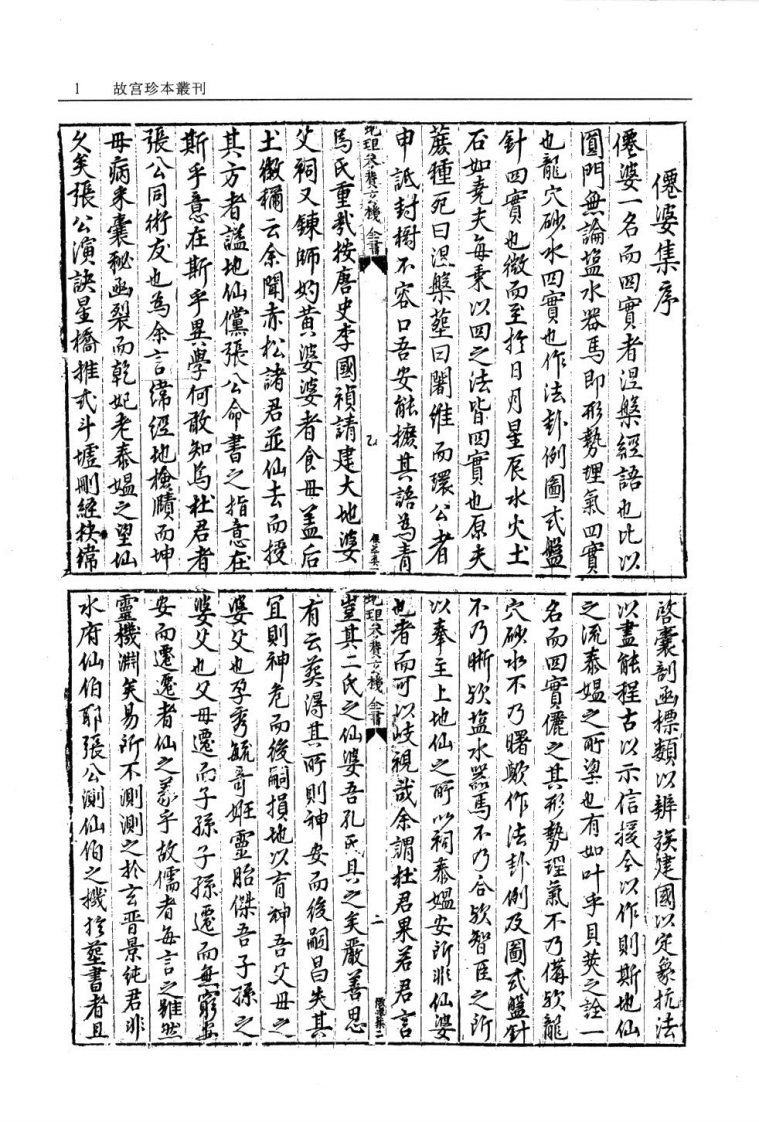 1 故宮珍本叢刊
僊婆集序
僊婆一名而四實者涅槃經語也比以
圓門無論塩水器馬即形勢理氣四實
也龍穴砂水四實也作法卦例圖式盤
針四實也微而至於日月星辰水火土
石如堯夫每乘以四之法皆四實也原夫
蔑種死曰涅槃葬曰闍維而環公者
申詆封樹不容口吾安能擴其語為青
地理參贊玄機全書 乙
烏氏重哉按唐史李國禎請建大地婆
父祠又鍊師妁黃婆婆者食毋蓋后
土徽稱云余聞赤松諸君並仙去而授
其方者謚地仙儻張公命書之指意在
斯乎意在斯乎異學何敢知烏杜君者
張公同術友也為余言常經地檢賾而坤
毋病來囊秘函裂而乾妃老泰媼之望仙
久矣張公演訣星橋推式斗墟剛經柔緯
啓囊剖函標類以辨族建國以定象抗法
以盡能程古以示信援今以作則斯地仙
之流泰媼之所望也有如叶乎貝莢之詮一
名而四實儷之其形勢理氣不乃備歟龍
穴砂水不乃曙歟作法卦例及圖式盤針
不乃晰歟塩水器馬不乃合歟智臣之所
以奉至上地仙之所以祠泰媼安所非仙婆
也者而可以歧視哉余謂杜君果若君言
地理參贊玄機全書 二
豈其二氏之仙婆吾孔氏具之矣嚴善思
有云葬得其所則神安而後嗣昌失其
宜則神危而後嗣損地以育神吾父母之
婆父也孕秀毓奇妊靈胎傑吾子孫之
婆父也父母遷而子孫子孫遷而無窮
安而遷遷者仙之義乎故儒者每言之雖然
靈機淵矣易所不測測之於玄晋景純君非
水府仙伯耶張公測仙伯之機於塟書者且